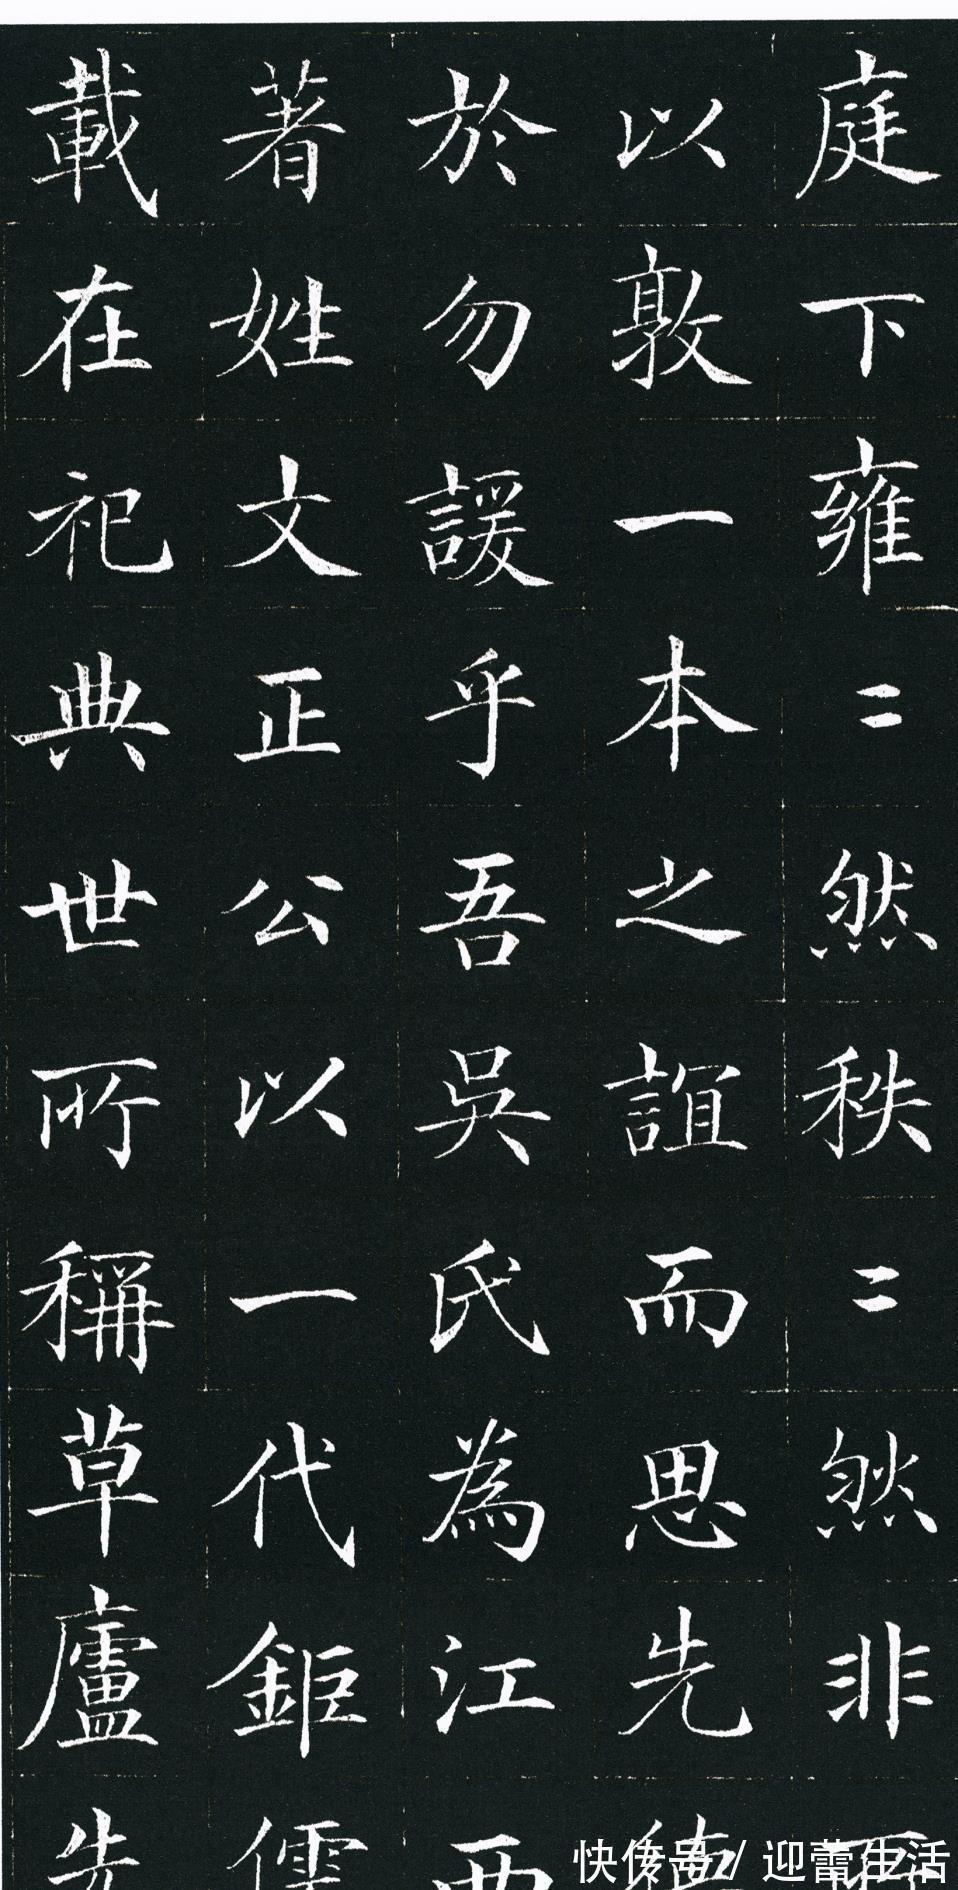 庭下雍〻然秩〻然非
以敦一本之誼而思先德
於勿諼乎吾吳氏為江西
著姓文正公以一代鉅儒
載在祀典世所稱草廬先
快传号 / 迎蕾生活